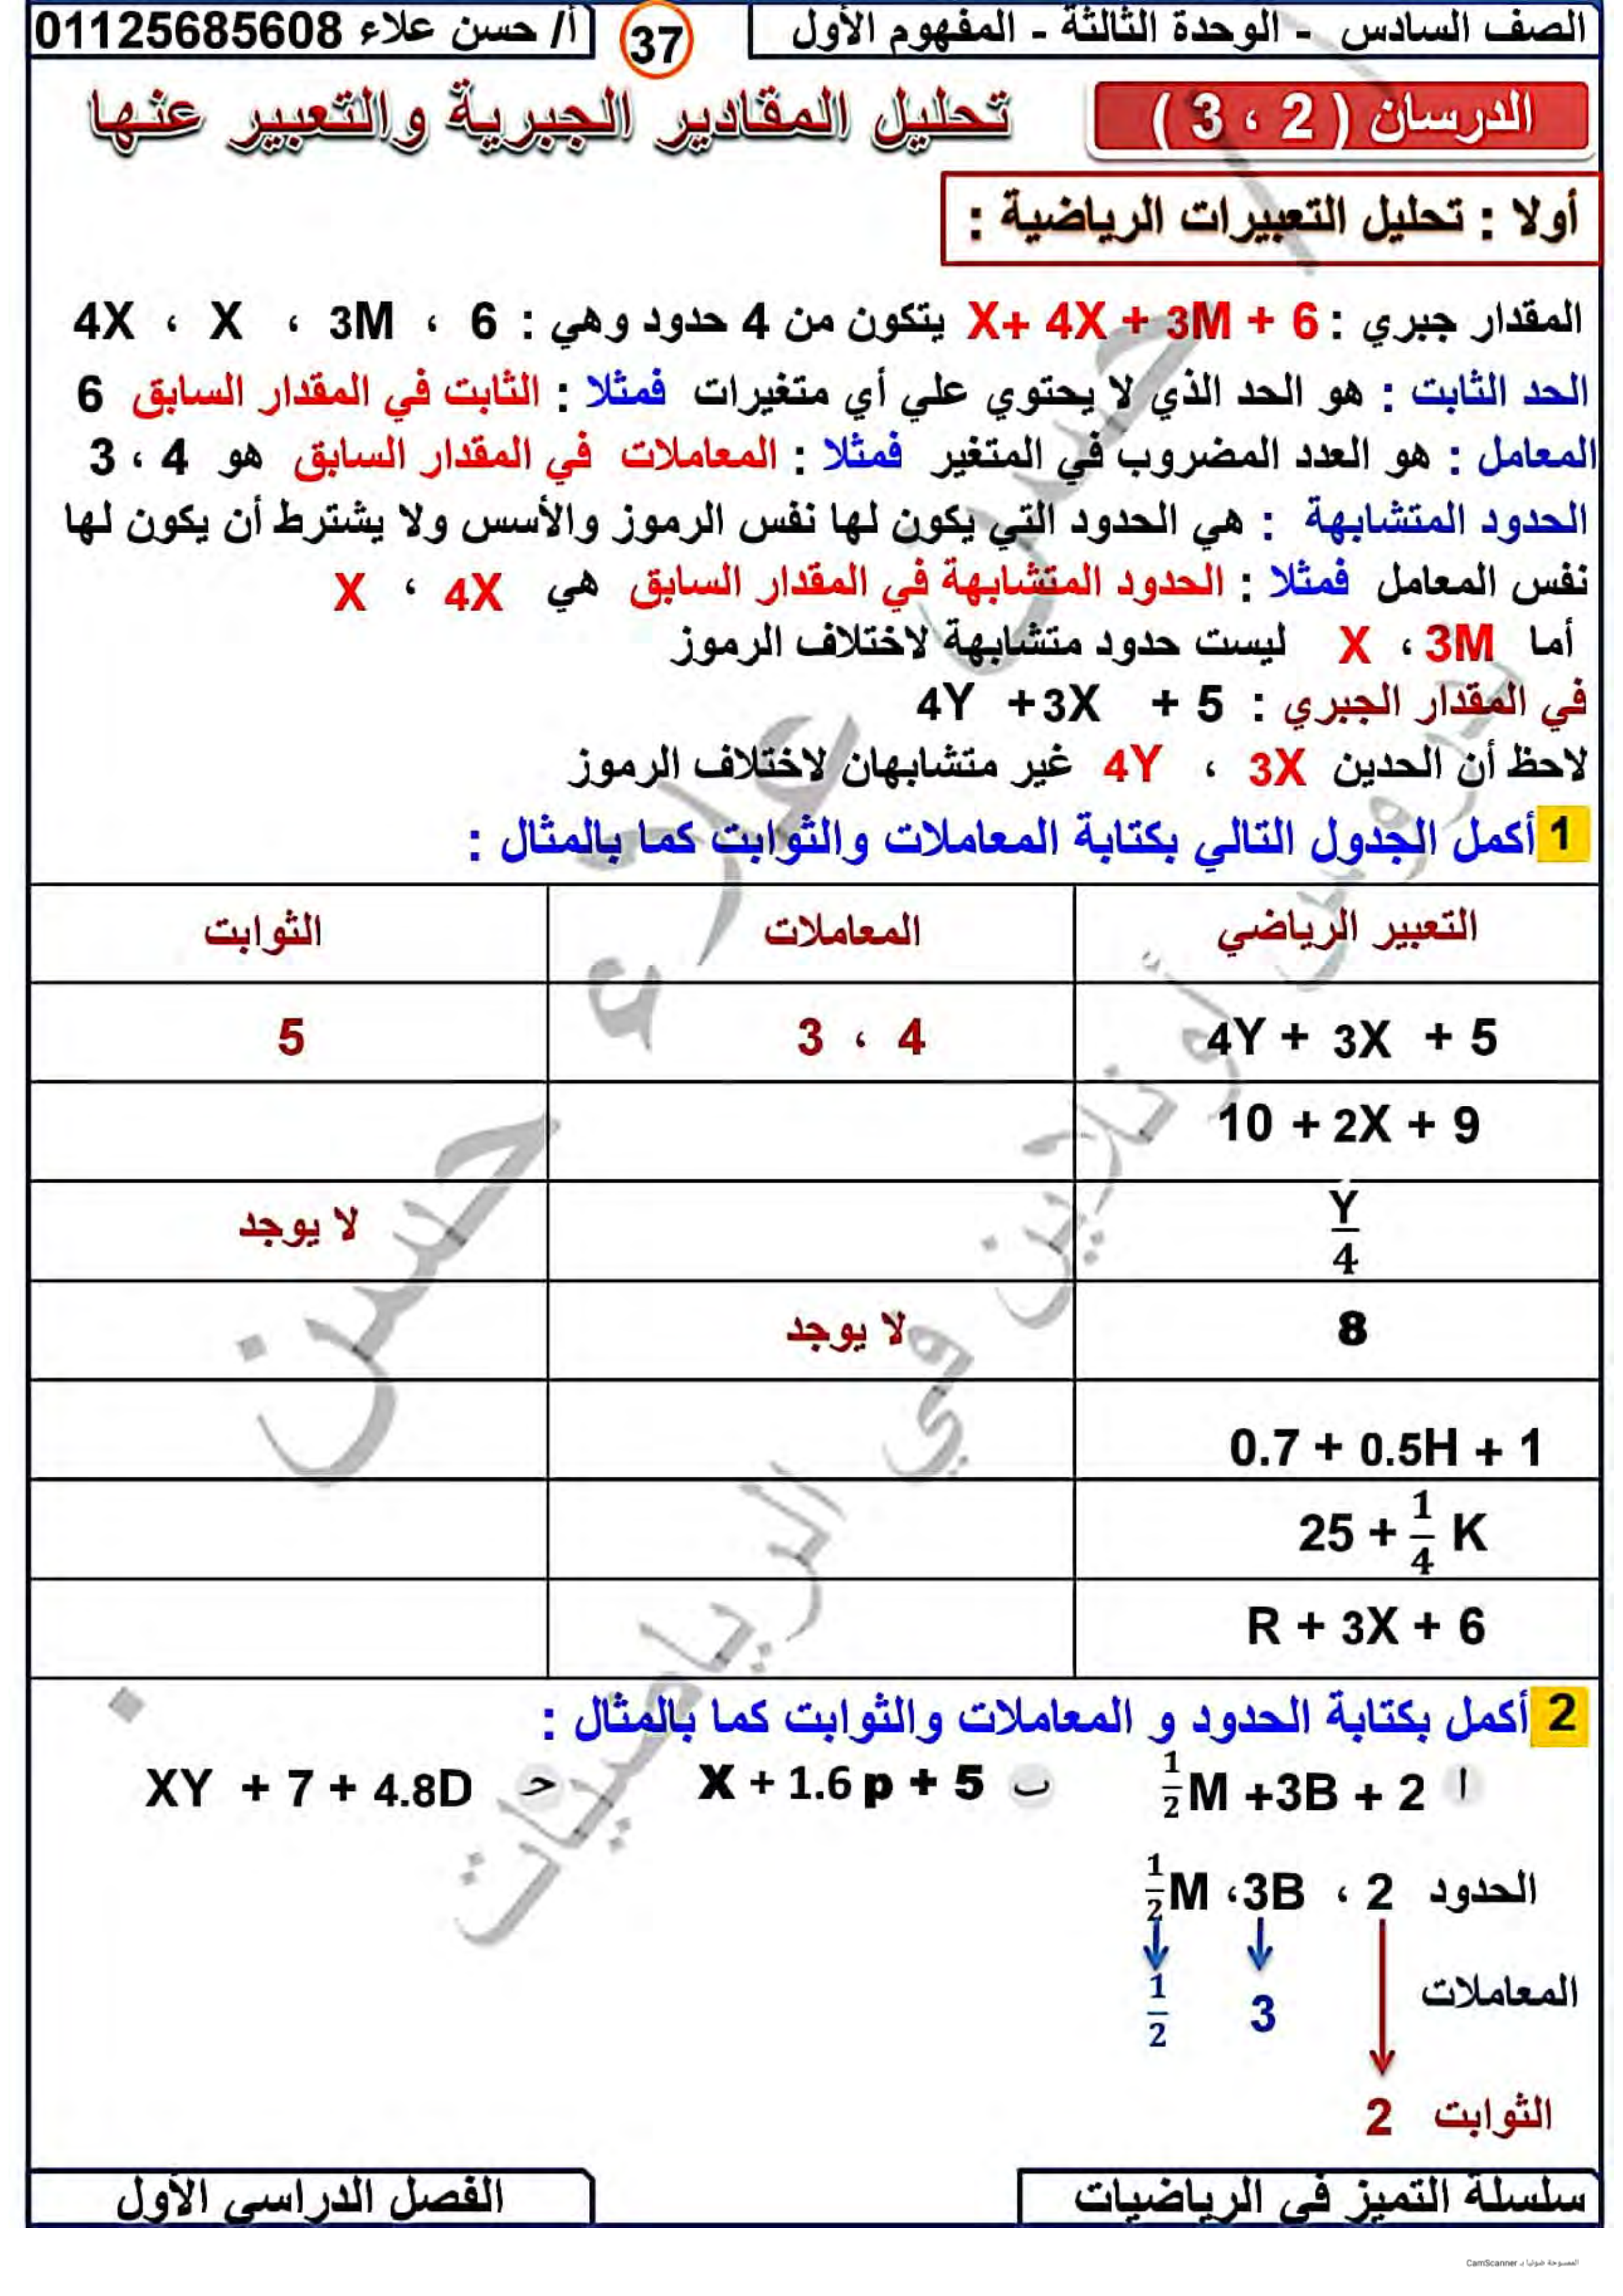 الصف السادس - الوحدة الثالثة - المفهوم الأول
37
أ/ حسن علاء 01125685608
الدرسان ( 2 ، 3 )
تحليل المقادير الجبرية والتعبير عنها
أولا : تحليل التعبيرات الرياضية :
المقدار جبري : X+ 4X + 3M + 6 يتكون من 4 حدود وهي : 6 ، 3M ، X ، 4X
الحد الثابت : هو الحد الذي لا يحتوي علي أي متغيرات فمثلا : الثابت في المقدار السابق 6
المعامل : هو العدد المضروب في المتغير فمثلا : المعاملات في المقدار السابق هو 4 ، 3
الحدود المتشابهة : هي الحدود التي يكون لها نفس الرموز والأسس ولا يشترط أن يكون لها
نفس المعامل فمثلا : الحدود المتشابهة في المقدار السابق هي 4X ، X
أما 3M ، X ليست حدود متشابهة لاختلاف الرموز
في المقدار الجبري : 4Y +3X + 5
لاحظ أن الحدين 3X ، 4Y غير متشابهان لاختلاف الرموز
1 أكمل الجدول التالي بكتابة المعاملات والثوابت كما بالمثال :
التعبير الرياضي المعاملات الثوابت
4Y + 3X + 5 4 ، 3 5
10 + 2X + 9
Y/4 لا يوجد
8 لا يوجد
0.7 + 0.5H + 1
25 + 1/4 K
R + 3X + 6
2 أكمل بكتابة الحدود و المعاملات والثوابت كما بالمثال :
أ 1/2M +3B + 2 ب X + 1.6 p + 5 حـ XY + 7 + 4.8D
الحدود 2 ، 3B، 1/2M
المعاملات 3 1/2
الثوابت 2
سلسلة التميز في الرياضيات
الفصل الدراسي الأول
الممسوحة ضوئيا بـ CamScanner
حسن علاء
دروس أونلاين في الرياضيات
حسن